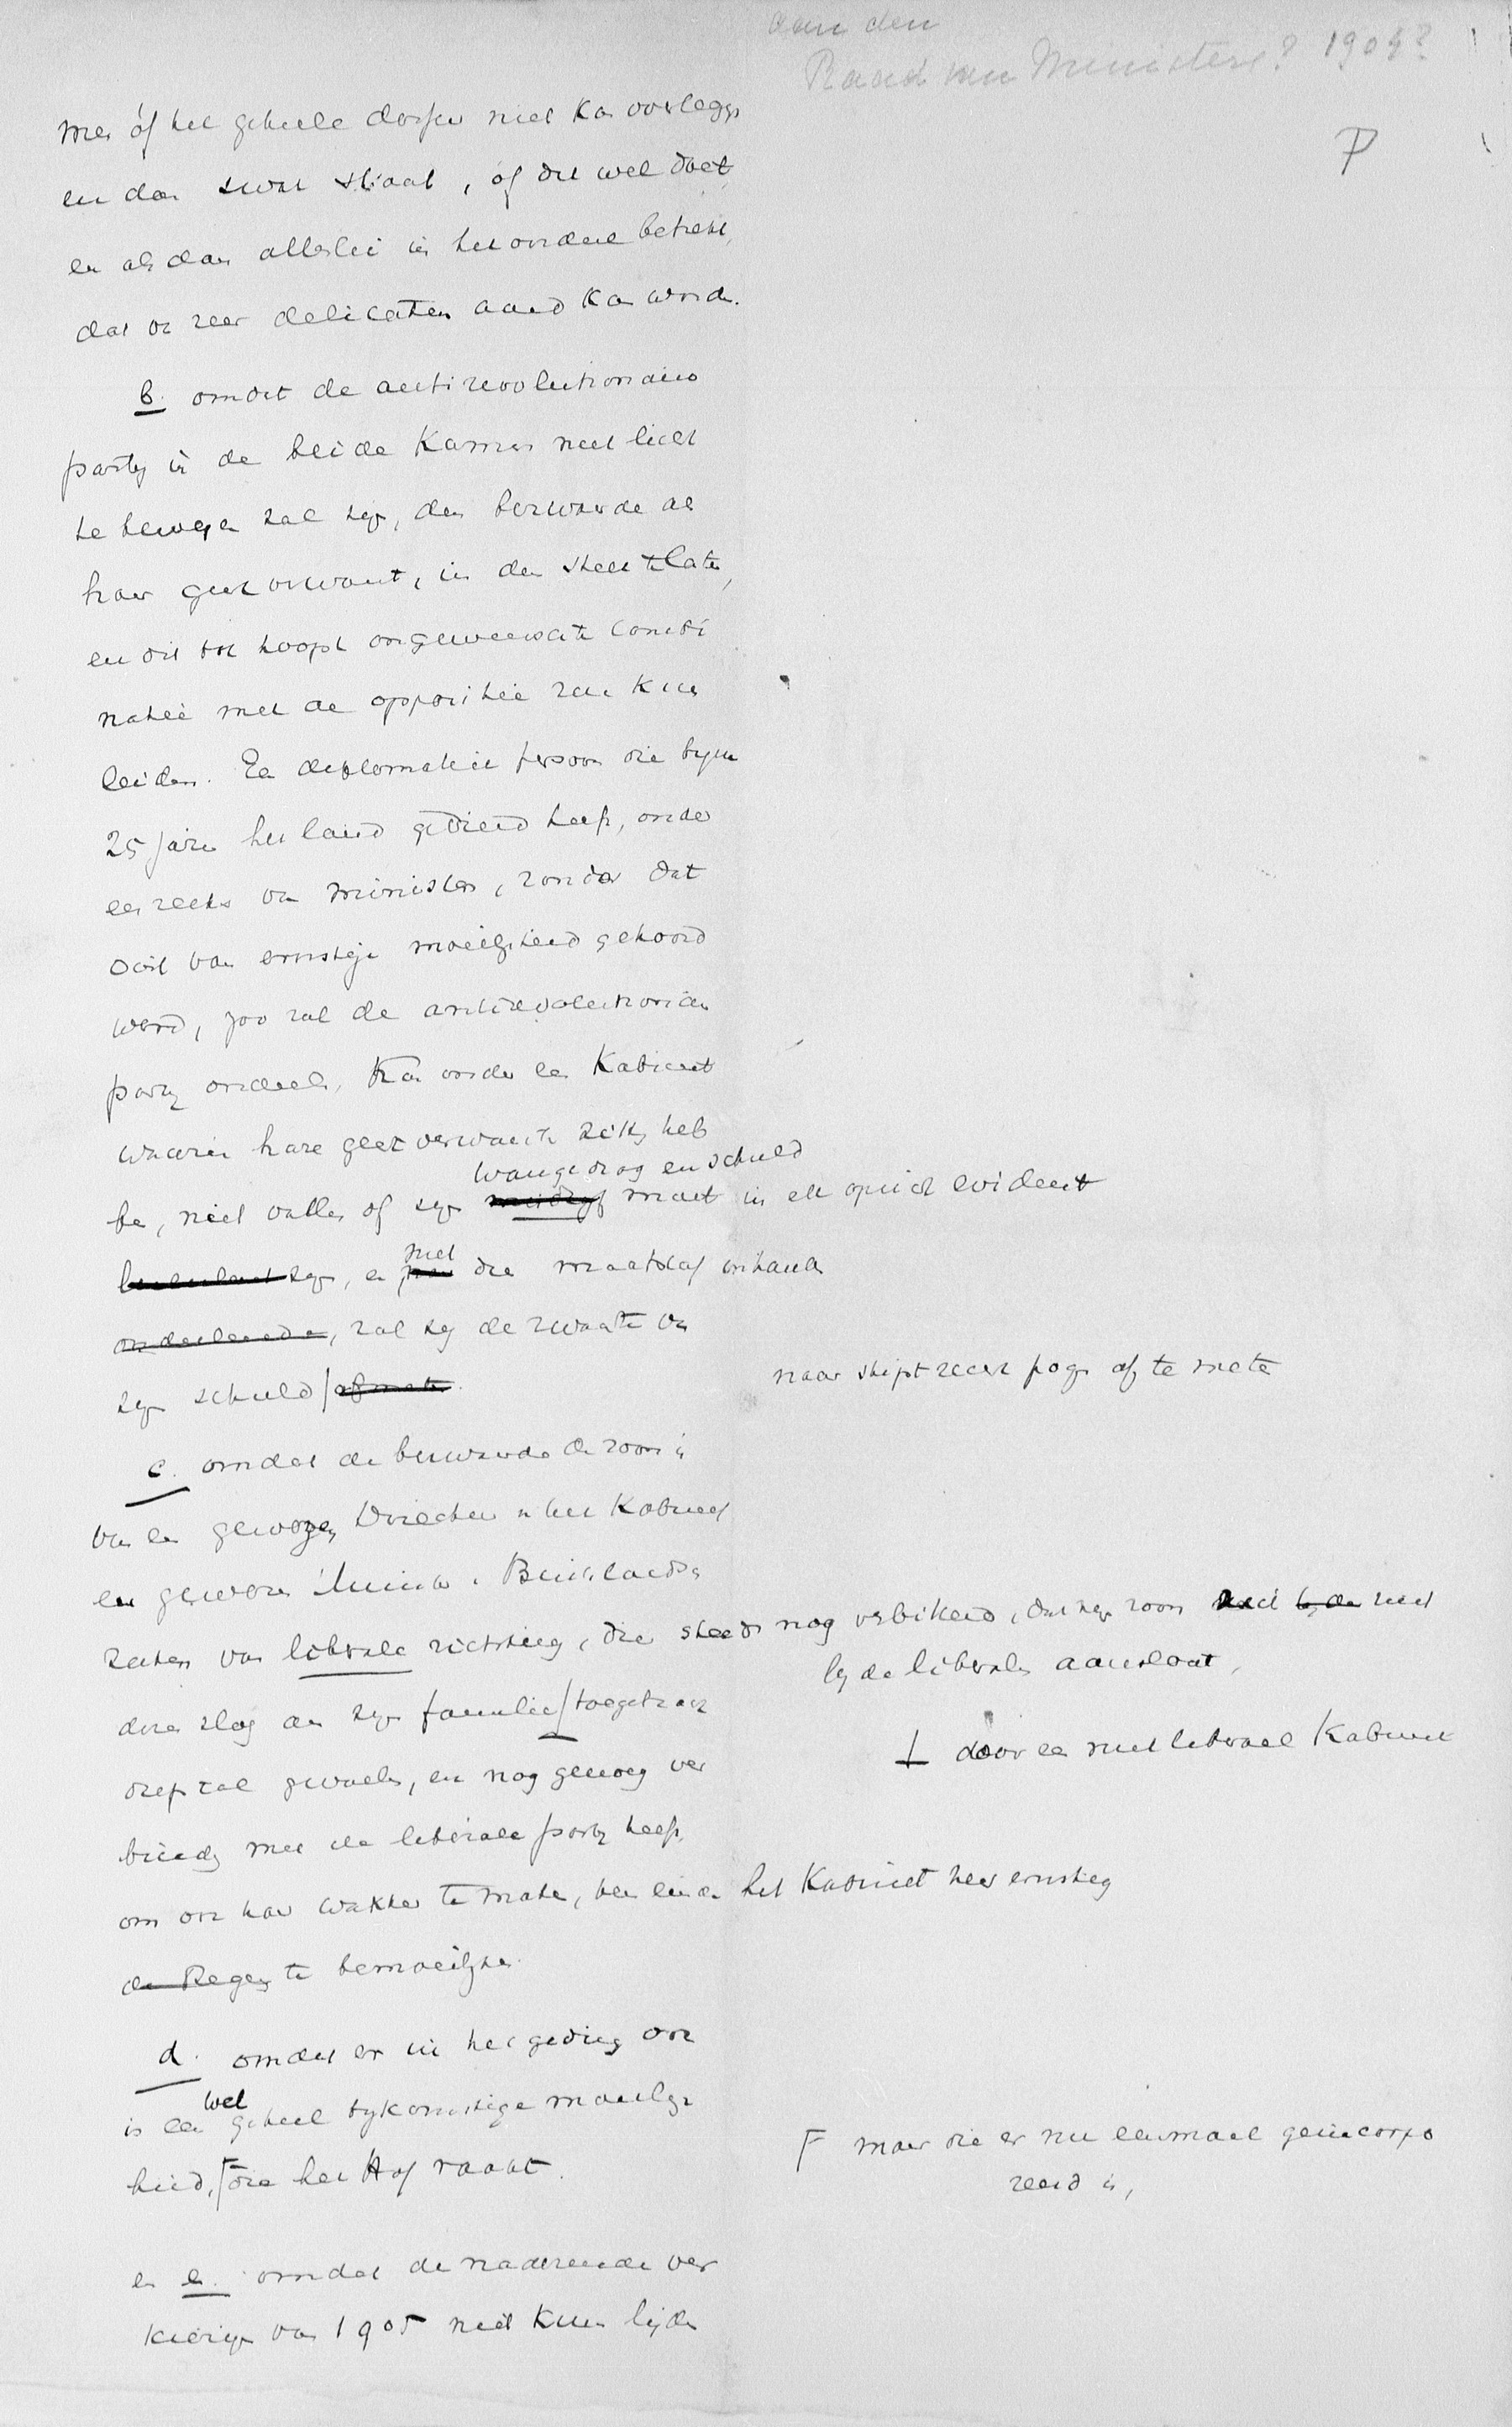 aan den
Raad van Ministers? 1904?
P
men óf het geheele dossier niet kan overleggen
en dan zwak staat, óf dit wel doet
en als dan allerlei in het oordeel betrekt,
dat van zeer delicaten aard kan worden.
b. omdat de antirevolutionaire
party in de beide Kamers niet licht
te bewegen zal zijn, den bezwaarde als
haar geestverwant, in den steek te laten,
en dit tot hoogst ongewenschte combi
natie met de oppositie zou kunnen
leiden. Een diplomatiek persoon die bijna
25 jaren het land gediend heeft, onder
een reeks van ministers, zonder dat
ooit van ernstige moeilijkheid gehoord
werd, zoo zal de antirevolutionaire
party oordeelen, kan onder een Kabinet
waarin hare geestverwanten zitting heb
ben, niet vallen of zijn wangedrag en schuld moet in elk opzicht evident
zijn, en met die maatstaf in handen
zal zij de zwaarte van
zijn schuld naar stipt recht pogen af te meten
c. omdat de bezwaarde de zoon is
van een gewezen Directeur van het Kabinet
en gewezen Minister van Buitenlandsche
Zaken van liberale richting, die steeds nog verbitterd, dat zijn zoon zich niet
bij de liberalen aansloot,
dezen slag aan zijn familie toegebracht
⊥ door een niet liberaal Kabinet
diep zal gevoelen, en nog genoeg ver
binding met de liberale party heeft,
om ook haar wakker te maken, ten einde het Kabinet zeer ernstig
de Regering te bemoeilijken.
d. omdat er in het geding ook
is een wel geheel bijkomstige moeilijk
heid, F die het Hof raakt.
F maar die er nu eenmaal geincorpo
reerd is,
en e. omdat de naderende ver
kiezingen van 1905 niet kunnen lijden